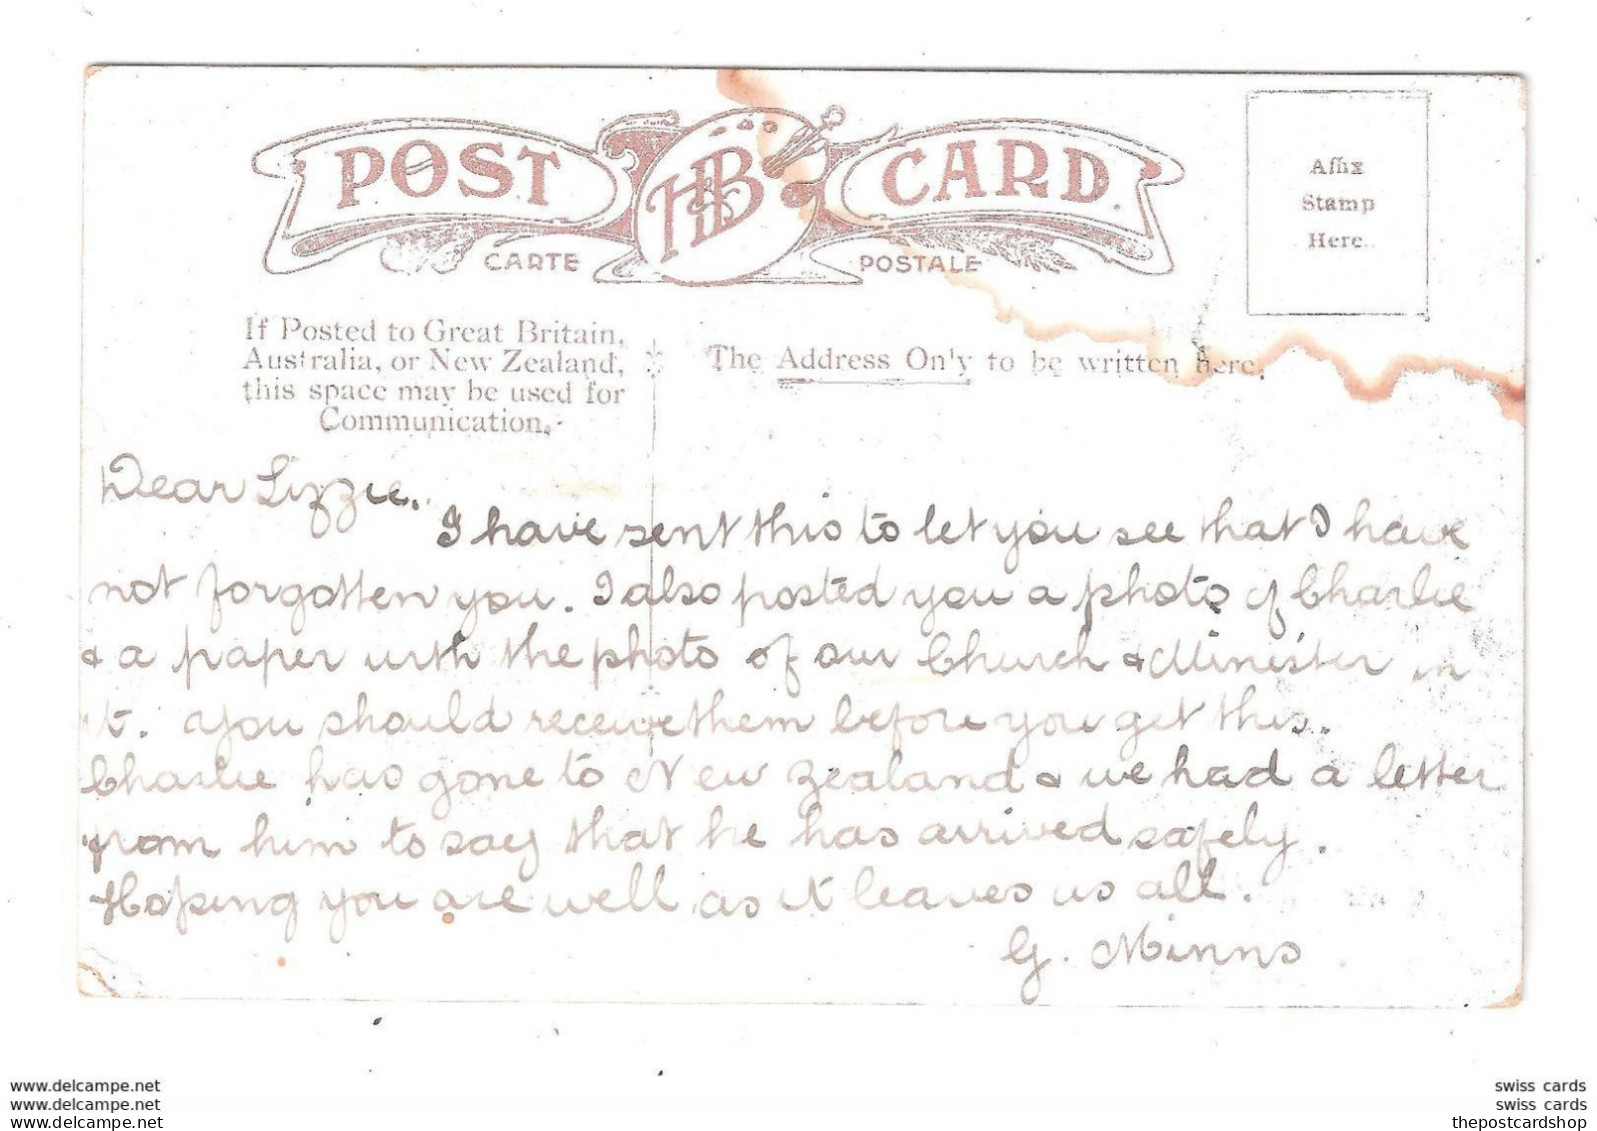 POST HB CARD
CARTE POSTALE
Affix
Stamp
Here.
If Posted to Great Britain,
Australia, or New Zealand,
this space may be used for
Communication.
The Address Only to be written here.
Dear Lizzie.
I have sent this to let you see that I have
not forgotten you. I also posted you a photo of Charlie
& a paper with the photo of our Church & Minister in
it. You should receive them before you get this.
Charlie has gone to New Zealand & we had a letter
from him to say that he has arrived safely.
Hoping you are well as it leaves us all.
G. Minns
www.delcampe.net
www.delcampe.net
www.delcampe.net
swiss cards
swiss cards
thepostcardshop